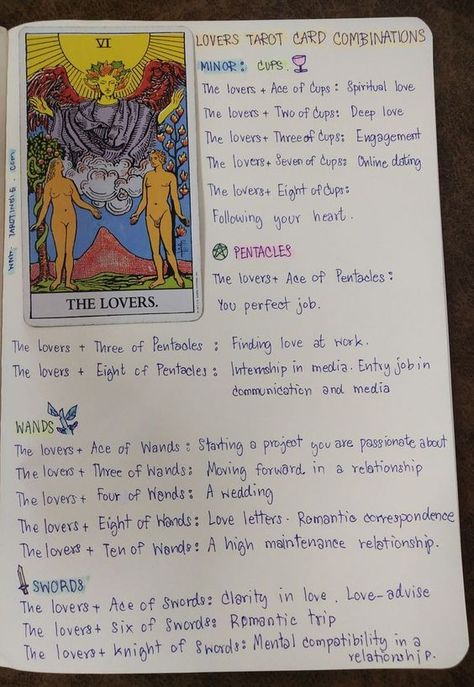 LOVERS TAROT CARD COMBINATIONS
VI
THE LOVERS.
MINOR: CUPS.
The lovers + Ace of Cups: Spiritual love
The lovers + Two of Cups: Deep love
The lovers + Three of Cups: Engagement
The lovers + Seven of Cups: Online dating
The lovers + Eight of Cups:
Following your heart.
PENTACLES
The lovers + Ace of Pentacles:
You perfect job.
The lovers + Three of Pentacles: Finding love at work.
The lovers + Eight of Pentacles: Internship in media. Entry job in
communication and media
WANDS
The lovers + Ace of Wands: Starting a project you are passionate about
The lovers + Three of Wands: Moving forward in a relationship
The lovers + Four of Wands: A wedding
The lovers + Eight of Wands: Love letters. Romantic correspondence
The lovers + Ten of Wands: A high maintenance relationship.
SWORDS
The lovers + Ace of Swords: Clarity in love. Love-advise
The lovers + Six of Swords: Romantic trip
The lovers + Knight of Swords: Mental compatibility in a
relationship.